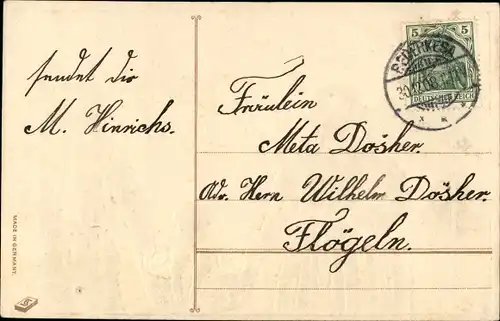 sendet dir
M. Hinrichs.
Fräulein
Meta Döscher.
Adr. Herrn Wilhelm Döscher.
Flögeln.
5 5
DEUTSCHES REICH
MADE IN GERMANY.